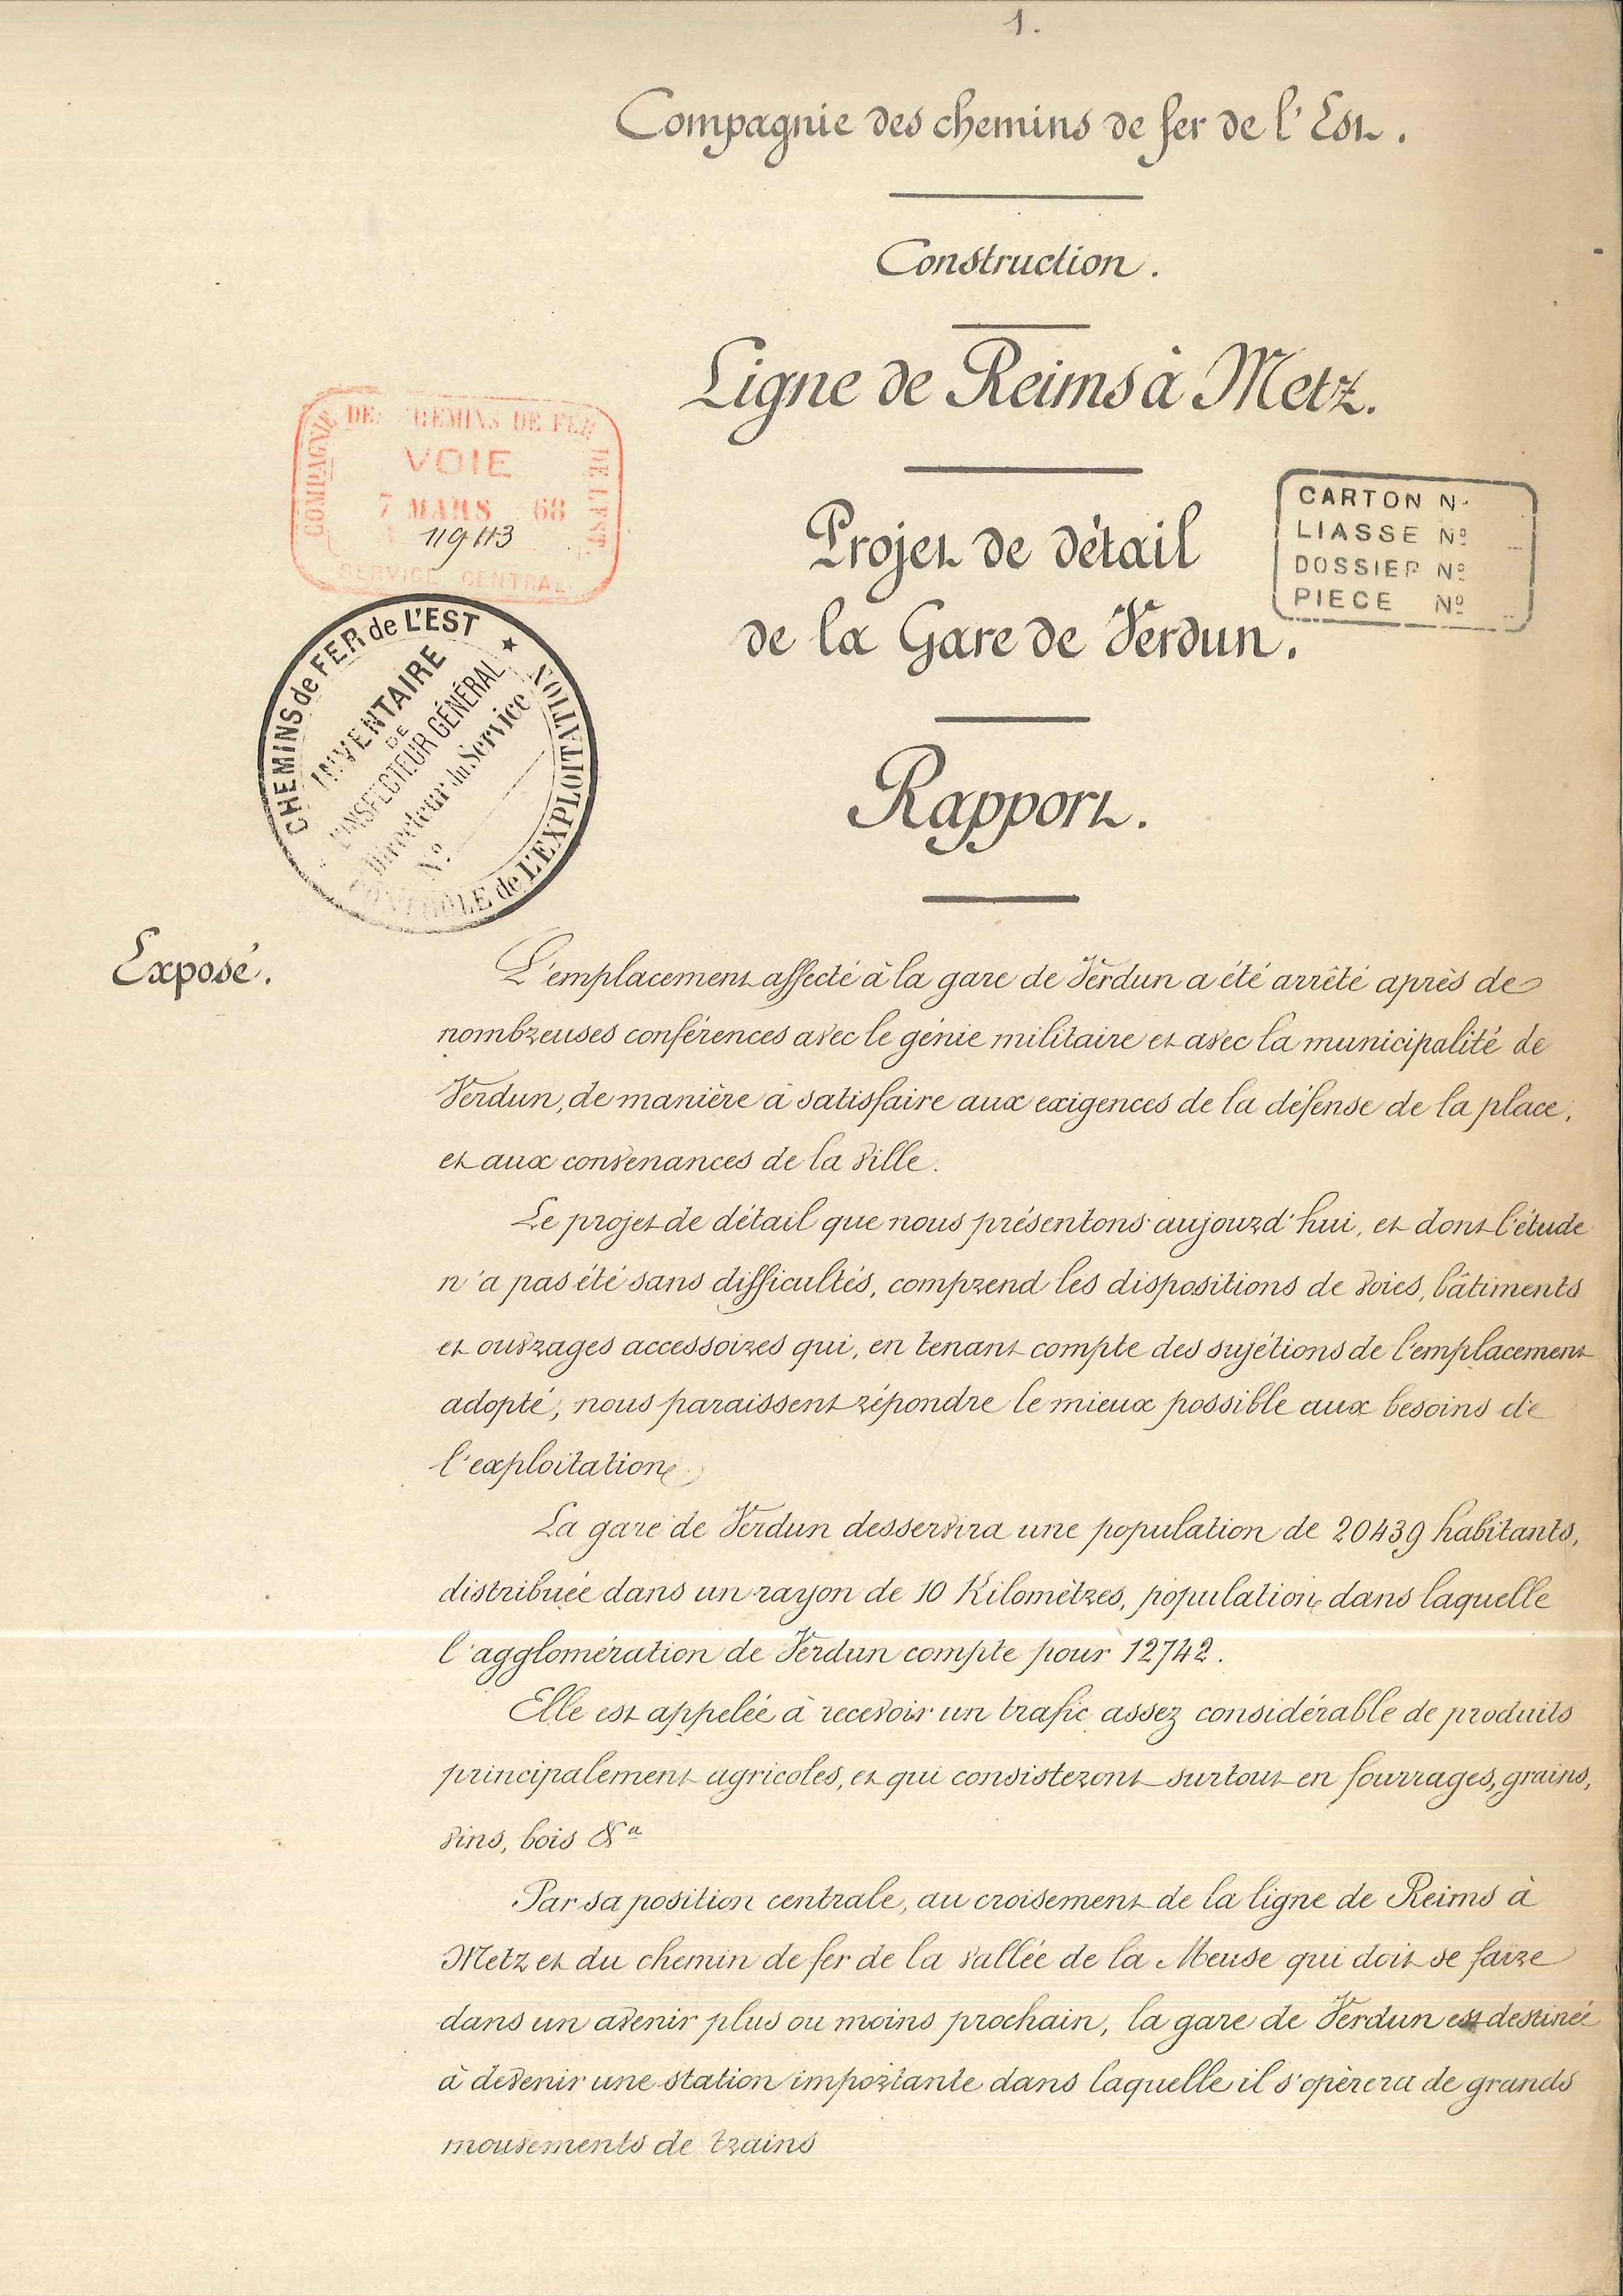 1.
Compagnie des chemins de fer de l'Est.
Construction.
Ligne de Reims à Metz.
COMPAGNIE DES CHEMINS DE FER DE L'EST
VOIE
7 MARS 68
119113
SERVICE CENTRAL
CARTON N.
LIASSE Nº
DOSSIER Nº
PIECE Nº
Projet de détail
de la Gare de Verdun.
CHEMINS de FER de L'EST ★
INVENTAIRE
DE
L'INSPECTEUR GÉNÉRAL
Directeur du Service
Nº
CONTRÔLE de L'EXPLOITATION
Rapport.
Exposé.
L'emplacement affecté à la gare de Verdun a été arrêté après de
nombreuses conférences avec le génie militaire et avec la municipalité de
Verdun, de manière à satisfaire aux exigences de la défense de la place,
et aux convenances de la ville.
Le projet de détail que nous présentons aujourd'hui, et dont l'étude
n'a pas été sans difficultés, comprend les dispositions de voies, bâtiments
et ouvrages accessoires qui, en tenant compte des sujétions de l'emplacement
adopté, nous paraissent répondre le mieux possible aux besoins de
l'exploitation.
La gare de Verdun desservira une population de 20439 habitants,
distribuée dans un rayon de 10 Kilomètres, population dans laquelle
l'agglomération de Verdun compte pour 12742.
Elle est appelée à recevoir un trafic assez considérable de produits
principalement agricoles, et qui consisteront surtout en fourrages, grains,
vins, bois &a
Par sa position centrale, au croisement de la ligne de Reims à
Metz et du chemin de fer de la vallée de la Meuse qui doit se faire
dans un avenir plus ou moins prochain, la gare de Verdun est destinée
à devenir une station importante dans laquelle il s'opèrera de grands
mouvements de trains